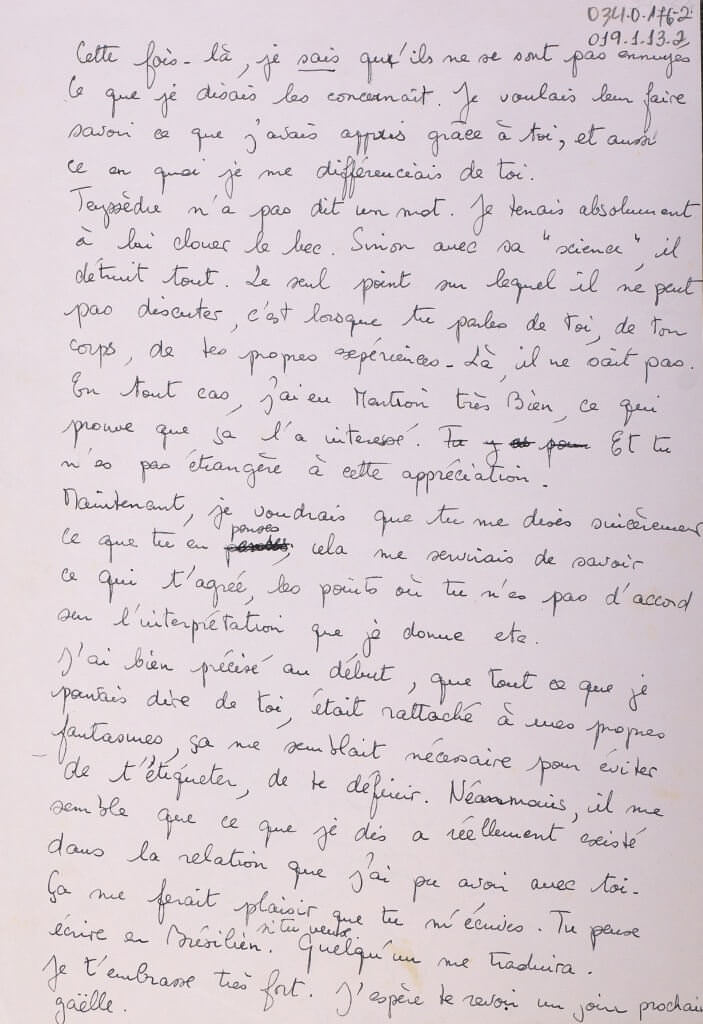 034.0.176-2
019.1.13.2
Cette fois-là, je sais qu'ils ne se sont pas ennuyés
Ce que je disais les concernait. Je voulais leur faire
savoir ce que j'avais appris grâce à toi, et aussi
ce en quoi je me différenciais de toi.
Teyssèdre n'a pas dit un mot. Je tenais absolument
à lui clouer le bec. Sinon avec sa "science", il
détruit tout. Le seul point sur lequel il ne peut
pas discuter, c'est lorsque tu parles de toi, de ton
corps, de tes propres expériences - Là, il ne sait pas.
En tout cas, j'ai eu Mention très Bien, ce qui
prouve que ça l'a interessé. Tu y es pour Et tu
n'es pas étrangère à cette appréciation.
Maintenant, je voudrais que tu me dises sincèrement
ce que tu en penses, cela me servirais de savoir
ce qui t'agrée, les points où tu n'es pas d'accord
sur l'interprétation que je donne etc.
J'ai bien précisé au début, que tout ce que je
pouvais dire de toi, était rattaché à mes propres
fantasmes, ça me semblait nécessaire pour éviter
de t'étiqueter, de te définir. Néanmoins, il me
semble que ce que je dis a réellement existé
dans la relation que j'ai pu avoir avec toi -
Ça me ferait plaisir que tu m'écrives. Tu peux
écrire en Brésilien. si tu veux. Quelqu'un me traduira.
Je t'embrasse très fort. J'espère te revoir un jour prochain
gaëlle.